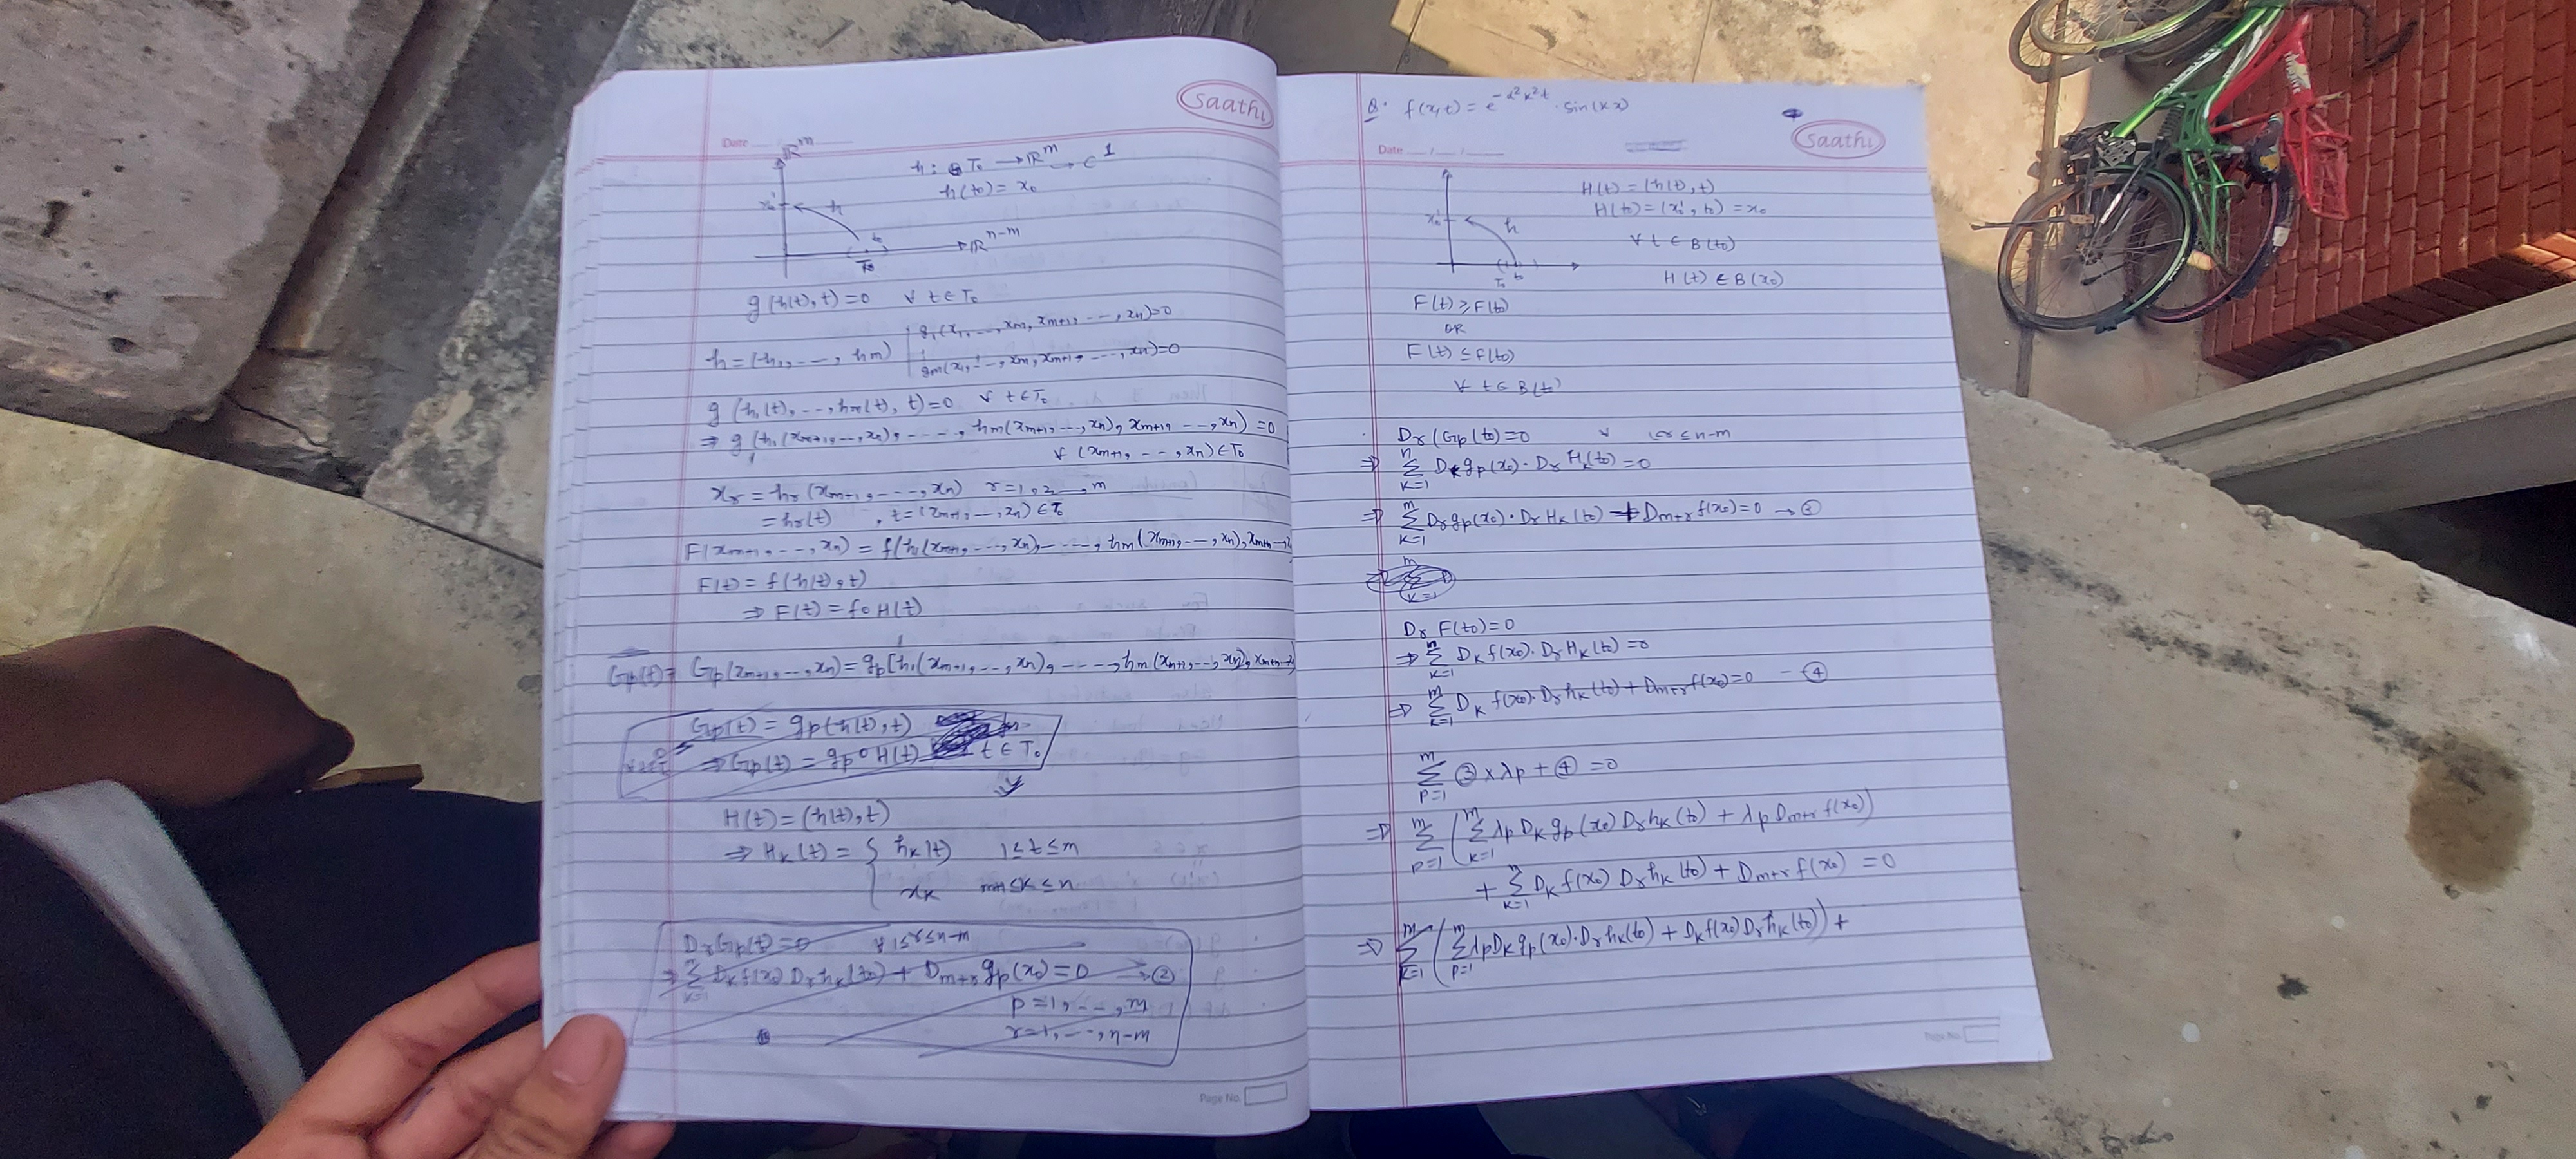 Saathi
Date
ℝ^m
h: T₀ → ℝ^m → C^1
h(t₀) = x₀
x₀'
h
t₀
T₀
ℝ^{n-m}
g(h(t), t) = 0 ∀ t ∈ T₀
h = (h₁, ---, hm)
g₁(x₁, ..., xm, xm+1, ---, xn) = 0
gm(x₁, ---, xm, xm+1, ---, xn) = 0
g(h₁(t), ---, hm(t), t) = 0 ∀ t ∈ T₀
⇒ g(h₁(xm+1, ---, xn), ----, hm(xm+1, ---, xn), xm+1, ---, xn) = 0
∀ (xm+1, ---, xn) ∈ T₀
xr = hr(xm+1, ----, xn) r = 1, 2, ---, m
= hr(t) , t = (xm+1, ---, xn) ∈ T₀
F(xm+1, ---, xn) = f(h₁(xm+1, ---, xn), ----, hm(xm+1, ---, xn), xm+1
F(t) = f(h(t), t)
⇒ F(t) = f o H(t)
Gp(t) = Gp(xm+1, ---, xn) = gp[h₁(xm+1, ---, xn), ----, hm(xm+1, ---, xn), xm+1
Gp(t) = gp(h(t), t)
⇒ Gp(t) = gp o H(t) t ∈ T₀
H(t) = (h(t), t)
⇒ Hk(t) = { hk(t) 1 ≤ t ≤ m
xk m+1 ≤ k ≤ n
Dr Gp(t) = 0 ∀ 1 ≤ r ≤ n-m
⇒ Σ_{k=1}^m Dk f(x₀) Dr hk(t₀) + Dm+r gp(x₀) = 0 → ②
p = 1, ---, m
r = 1, ---, n-m
Page No.
Q. f(x,t) = e^{-α²k²t} . sin(kx)
Saathi
Date
H(t) = (h(t), t)
H(t₀) = (x₀', t₀) = x₀
x₀'
h
∀ t ∈ B(t₀)
T₀ t₀
H(t) ∈ B(x₀)
F(t) ≥ F(t₀)
OR
F(t) ≤ F(t₀)
∀ t ∈ B(t₀)
Dr(Gp(t₀) = 0 ∀ 1≤r ≤ n-m
⇒ Σ_{k=1}^n Dk gp(x₀) . Dr Hk(t₀) = 0
⇒ Σ_{k=1}^m Dr gp(x₀) . Dr Hk(t₀) + Dm+r f(x₀) = 0 → ③
Dr F(t₀) = 0
⇒ Σ_{k=1}^n Dk f(x₀) . Dr Hk(t₀) = 0
⇒ Σ_{k=1}^m Dk f(x₀) . Dr hk(t₀) + Dm+r f(x₀) = 0 - ④
Σ_{p=1}^m ③ x λp + ④ = 0
⇒ Σ_{p=1}^m (Σ_{k=1}^m λp Dk gp(x₀) Dr hk(t₀) + λp Dm+r f(x₀))
+ Σ_{k=1}^n Dk f(x₀) Dr hk(t₀) + Dm+r f(x₀) = 0
⇒ Σ_{k=1}^m (Σ_{p=1}^m λp Dk gp(x₀) . Dr hk(t₀) + Dk f(x₀) Dr hk(t₀)) +
Page No.